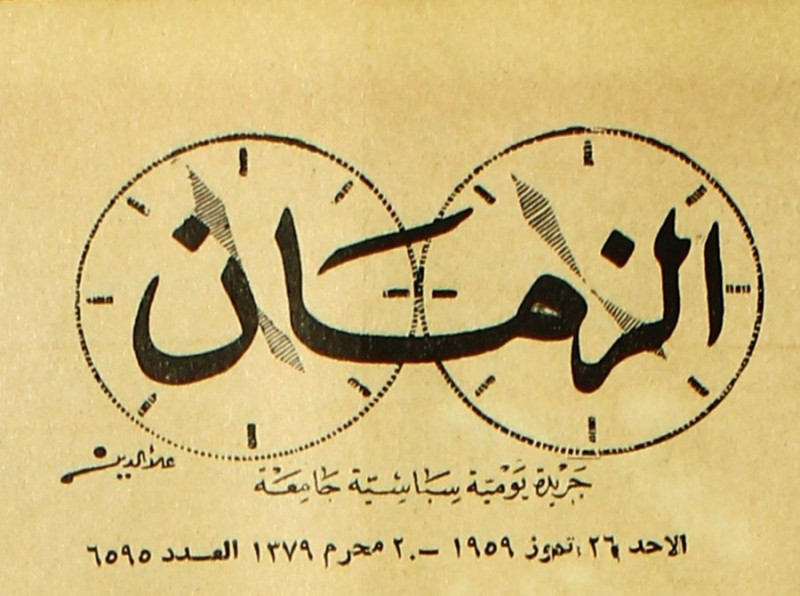 الزمان
علاءالدين
جَريدة يَوْميّة سِيَاسِيّة جَامِعَة
الاحد ٢٦ تموز ١٩٥٩ – ٢٠ محرم ١٣٧٩ العدد ٦٥٩٥